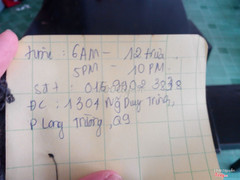 time : 6AM - 12 trưa
5PM - 10 PM
SĐT :
ĐC : 1304 Ng Duy Trinh,
P Long Trường, Q9